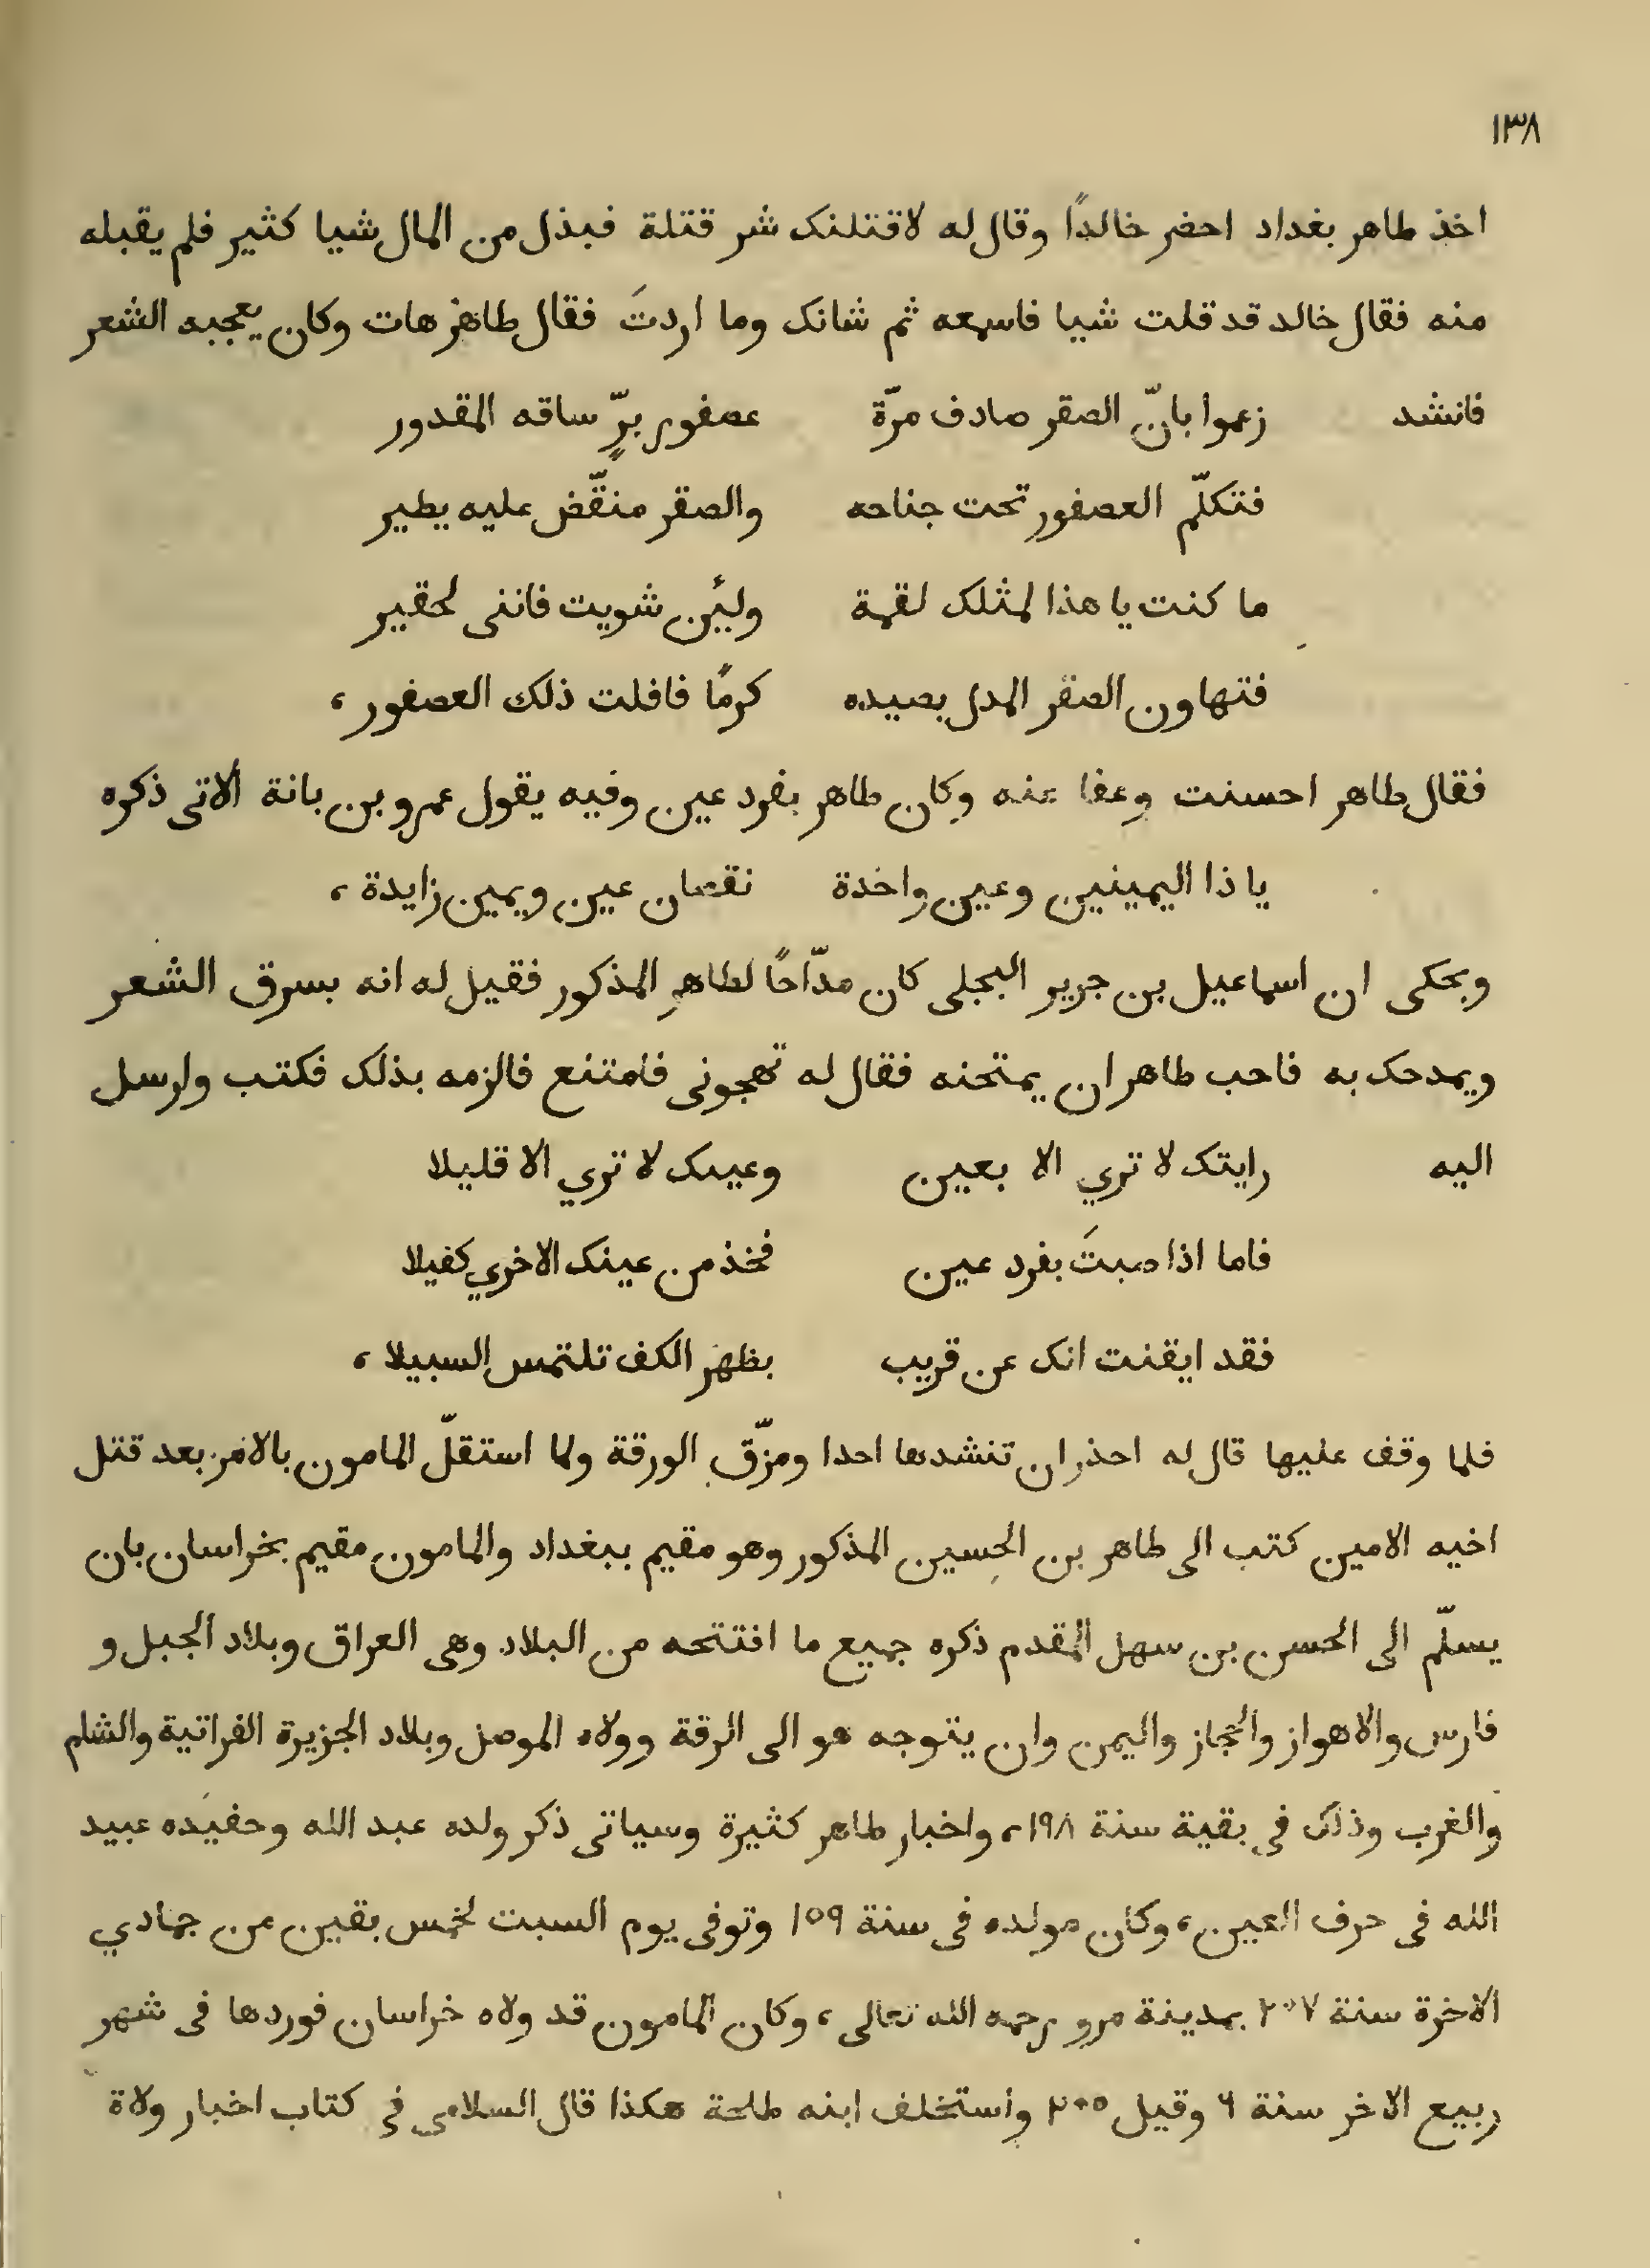 ١٣٨
اخذ طاهر بغداد احضر خالدًا وقال له لاقتلنك شر قتلة فبذل من المال شيا كثير فلم يقبله
منه فقال خالد قد قلت شيا فاسمعه ثم شانك وما اردتَ فقال طاهر هات وكان يعجبه الشعر
فانشد زعموا بانّ الصقر صادف مرّة عصفور برٍّ ساقه المقدور
فتكلّم العصفور تحت جناحه والصقر منقّض عليه يطير
ما كنت يا هذا لمثلك لقمة ولئن شويت فاننى لحقير
فتهاون الصقر المدل بصيده كرمًا فافلت ذلك العصفور ،
فقال طاهر احسنت وعفا عنه وكان طاهر بفرد عين وفيه يقول عمرو بن بانة الاتى ذكره
يا ذا اليمينين وعين واحدة نقصان عين ويمين زايدة ،
ويحكى ان اسماعيل بن جرير البجلى كان مدّاحًا لطاهر المذكور فقيل له انه يسرق الشعر
ويمدحك به فاحب طاهر ان يمتحنه فقال له تهجونى فامتنع فالزمه بذلك فكتب وارسل
اليه رايتك لا تري الا بعين وعينك لا تري الا قليلا
فاما اذا صبتَ بفرد عين فخذ من عينك الاخري كفيلا
فقد ايقنت انك عن قريب بظهر الكف تلتمس السبيلا ،
فلما وقف عليها قال له احذر ان تنشدها احدا ومزّق الورقة ولما استقلّ المامون بالامر بعد قتل
اخيه الامين كتب الى طاهر بن الحسين المذكور وهو مقيم ببغداد والمامون مقيم بخراسان بان
يسلّم الى الحسن بن سهل المقدم ذكره جميع ما افتتحه من البلاد وهى العراق وبلاد الجبل و
فارس والاهواز والحجاز واليمن وان يتوجه هو الى الرقة وولاه الموصل وبلاد الجزيرة الفراتية والشام
والغرب وذلك فى بقية سنة ١٩٨ ، واخبار طاهر كثيرة وسياتى ذكر ولده عبد الله وحفيده عبيد
الله فى حرف العين ، وكان مولده فى سنة ١٥٩ وتوفى يوم السبت لخمس بقين من جمادي
الاخرة سنة ٢٠٧ بمدينة مرو رحمه الله تعالى ، وكان المامون قد ولاه خراسان فوردها فى شهر
ربيع الاخر سنة ٦ وقيل ٢٠٥ واستخلف ابنه طلحة هكذا قال السلامى فى كتاب اخبار ولاة